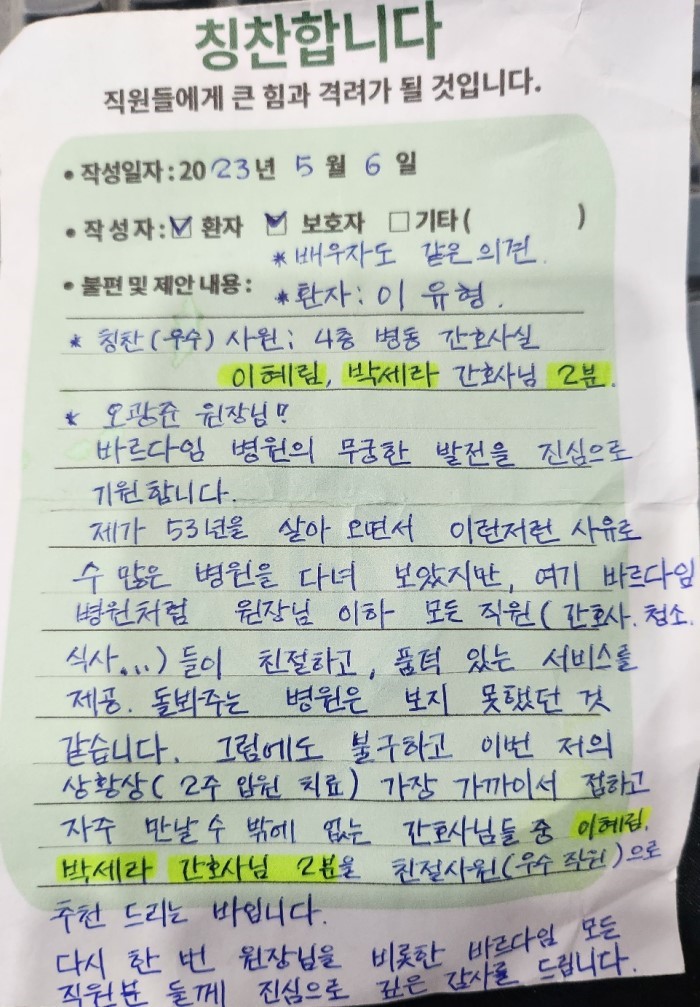 칭찬합니다
직원들에게 큰 힘과 격려가 될 것입니다.
• 작성일자 : 2023년 5월 6일
• 작 성 자 : ☑ 환자 ☑ 보호자 □ 기타 ( )
* 배우자도 같은 의견.
• 불편 및 제안 내용 : * 환자 : 이 유형.
* 칭찬(우수) 사원 : 4층 병동 간호사실
이혜림, 박세라 간호사님 2분.
* 오광준 원장님!
바르다임 병원의 무궁한 발전을 진심으로
기원합니다.
제가 53년을 살아 오면서 이런저런 사유로
수 많은 병원을 다녀 보았지만, 여기 바르다임
병원처럼 원장님 이하 모든 직원(간호사. 청소.
식사...)들이 친절하고, 품덕 있는 서비스를
제공. 돌봐주는 병원은 보지 못했던 것
같습니다. 그럼에도 불구하고 이번 저의
상황상(2주 입원 치료) 가장 가까이서 접하고
자주 만날 수 밖에 없는 간호사님들 중 이혜림,
박세라 간호사님 2분을 친절사원(우수 직원)으로
추천 드리는 바입니다.
다시 한 번 원장님을 비롯한 바르다임 모든
직원분 들께 진심으로 깊은 감사를 드립니다.